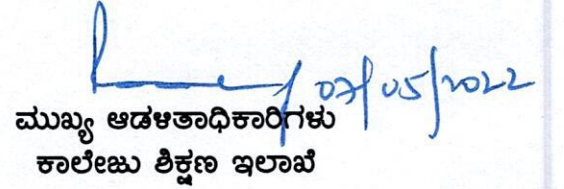 07/05/2022
ಮುಖ್ಯ ಆಡಳಿತಾಧಿಕಾರಿಗಳು
ಕಾಲೇಜು ಶಿಕ್ಷಣ ಇಲಾಖೆ